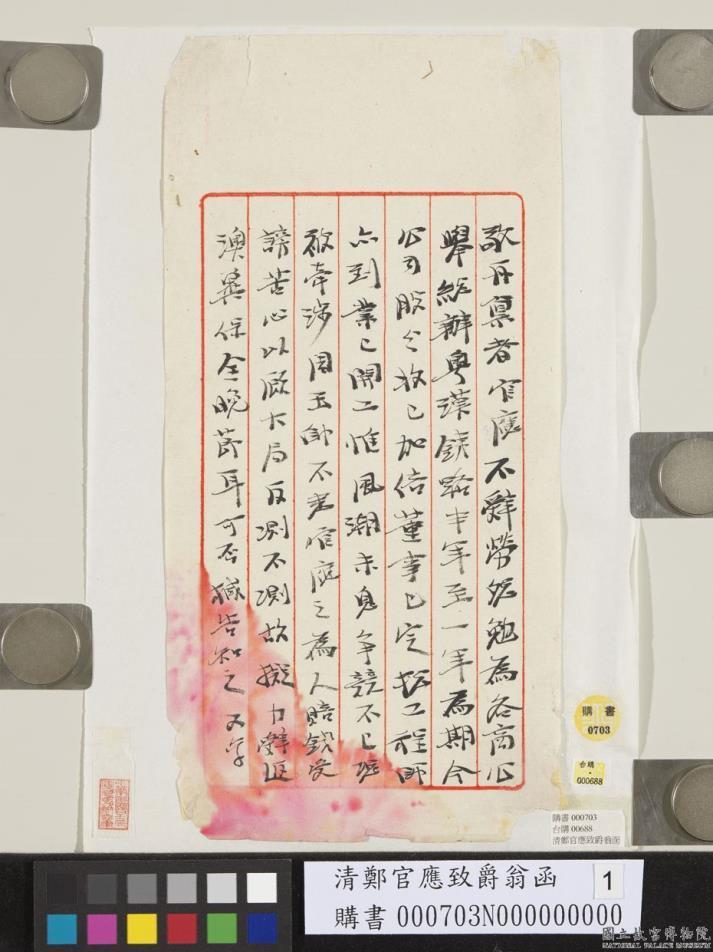 敬再稟者官應不辭勞怨勉為各商公
舉經辦粵漢鐵路半年至一年為期今
公司股已收已加倍董事已定總工程師
亦到業已開工惟風潮未息爭競不已恐
被牽涉周玉帥不悉官應之為人賠錢受
謗苦心以顧大局反測不測故擬力辭返
澳冀保全晚節耳可否緘告知之 又字
購書
0703
台購
000688
購書 000703
台購 00688
清鄭官應致爵翁函
清鄭官應致爵翁函
1
購書 000703N000000000
國立故宮博物院
NATIONAL PALACE MUSEUM